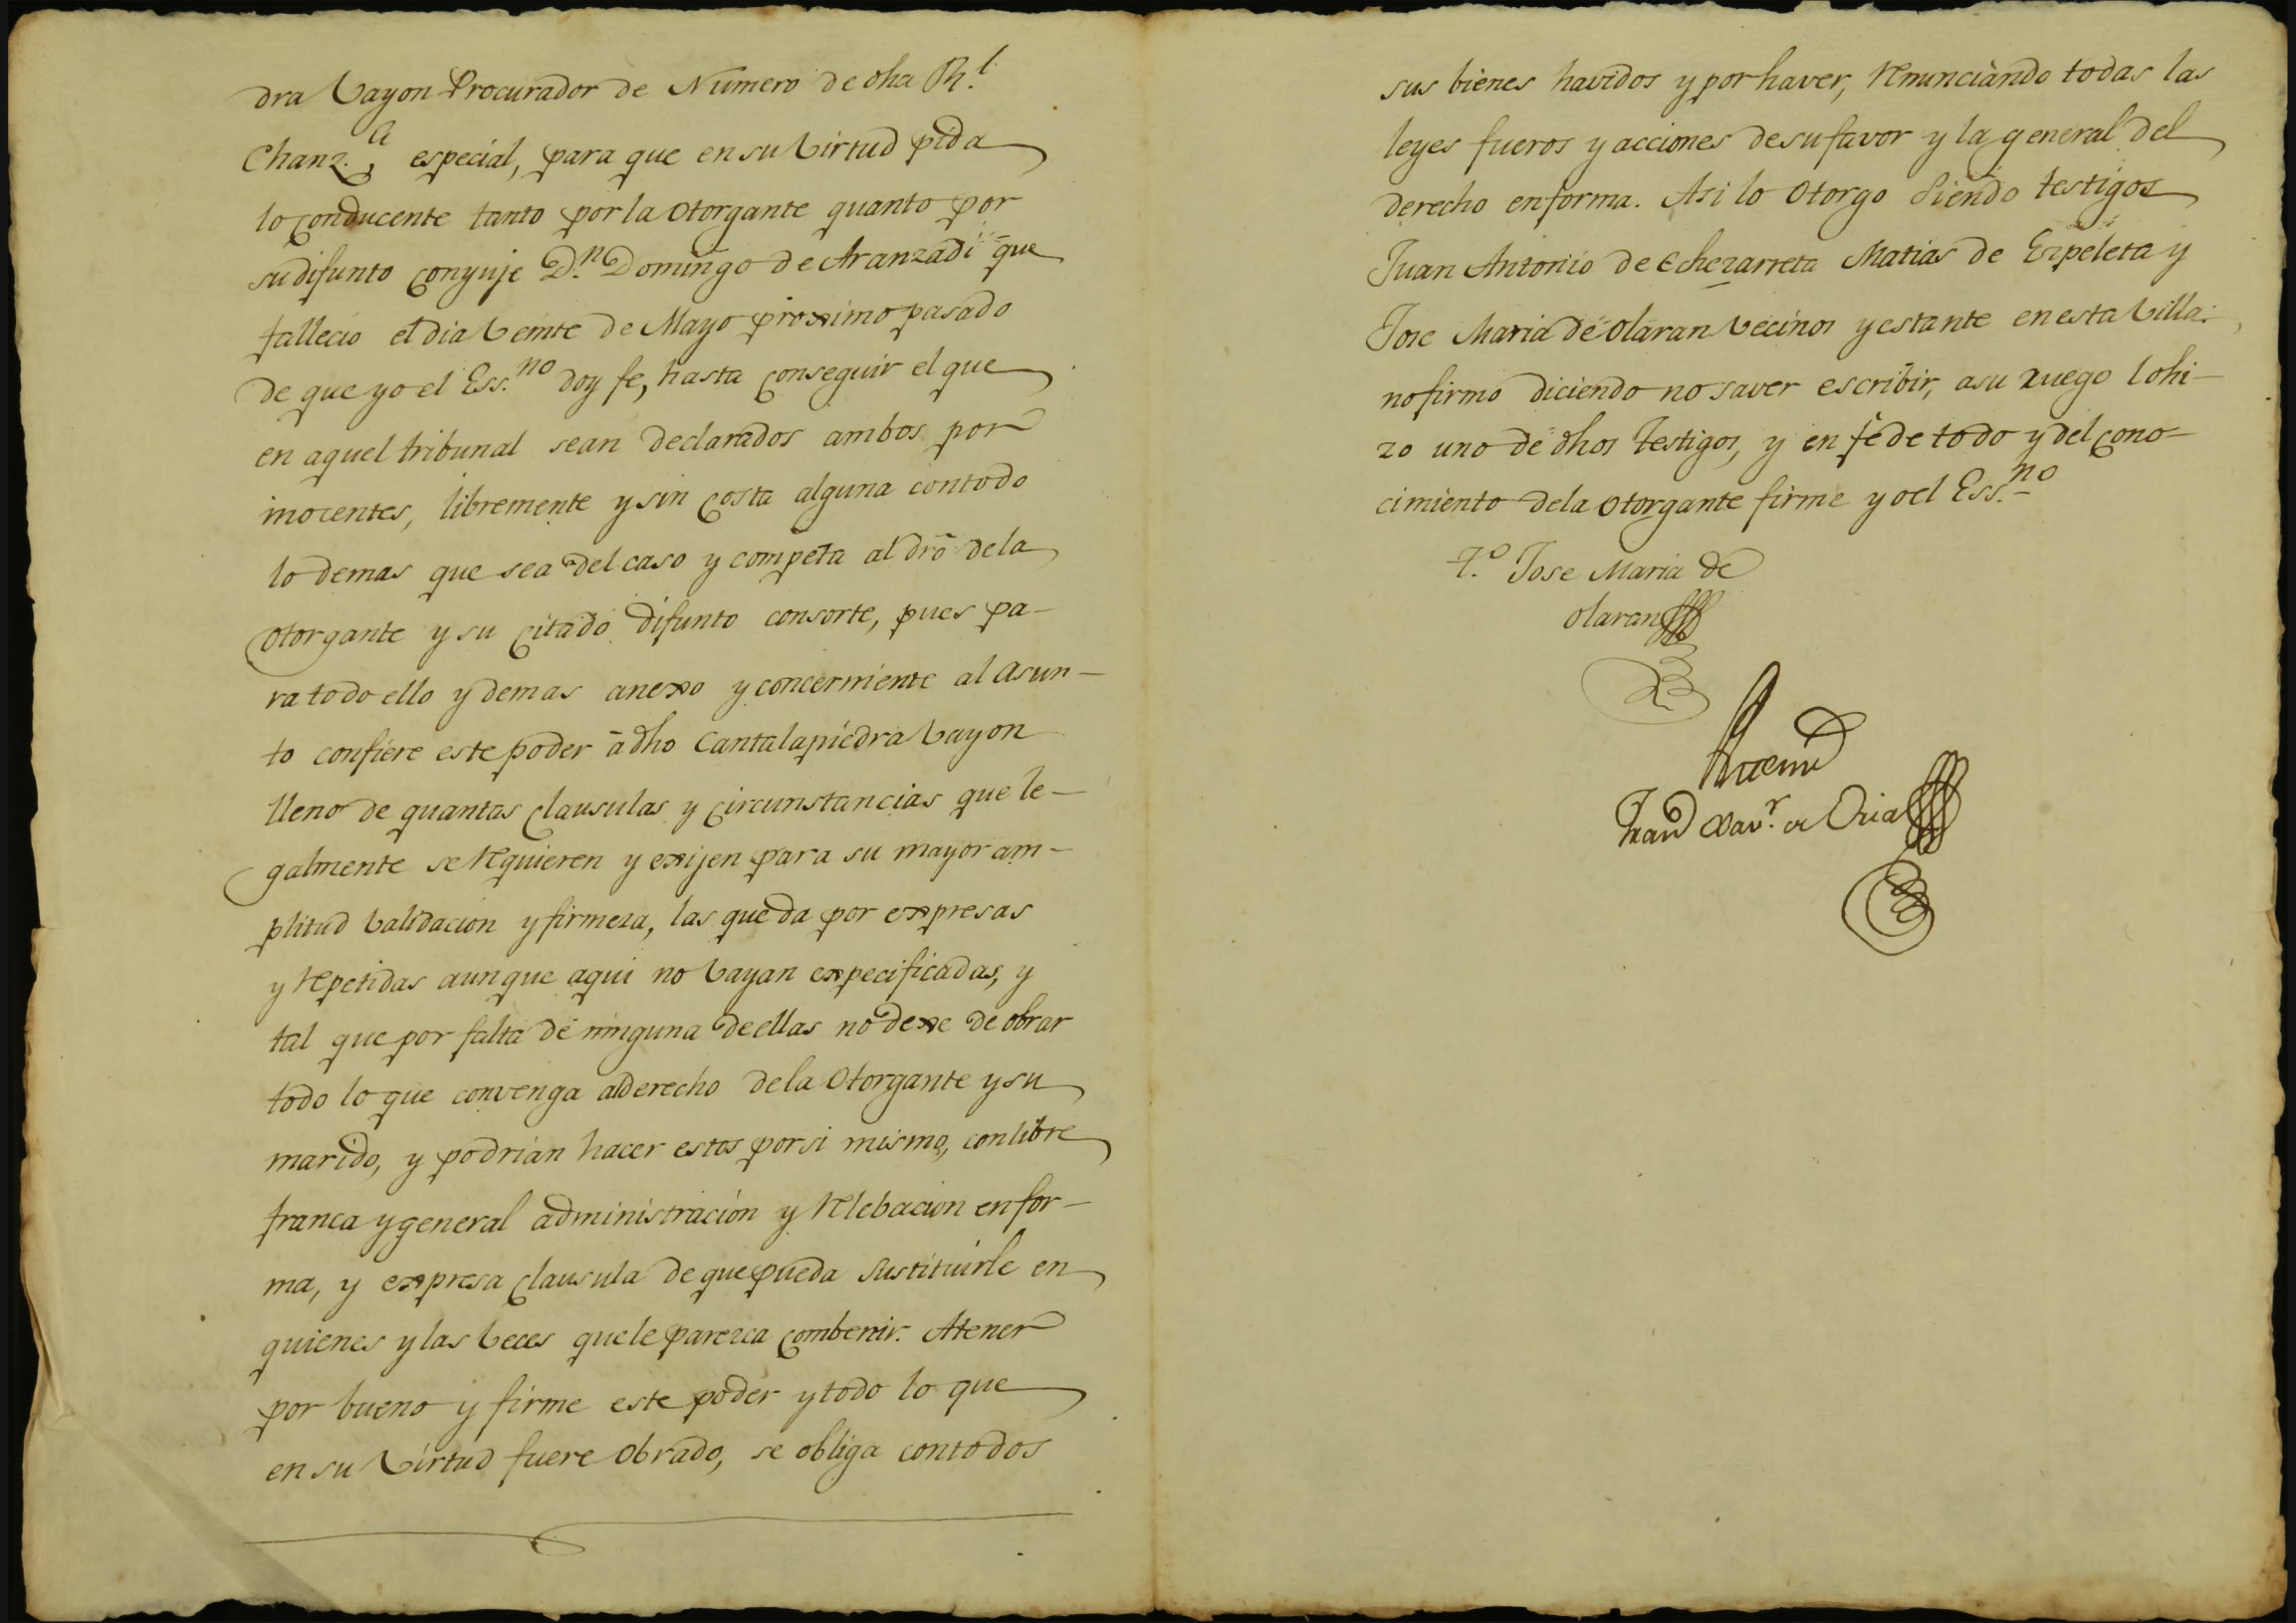 dra Vayon Procurador de Número de dha Rl.
Chanz.a especial, para que en su Virtud pida
lo conducente tanto por la otorgante quanto por
su difunto conyuje D.n Domingo de Aranzadi que
fallecio el dia Veinte de Mayo proximo pasado
de que yo el Ess.no doy fe, hasta conseguir el que
en aquel tribunal sean declarados ambos por
inocentes, libremente y sin costa alguna con todo
lo demas que sea del caso y competa al dro de la
otorgante y su citado difunto consorte, pues pa-
ra todo ello y demas anexo y concerniente al asun-
to confiere este poder a dho Cantalapiedra Vayon
lleno de quantas clausulas y circunstancias que le-
galmente se requieren y exijen para su mayor am-
plitud Validacion y firmeza, las que da por expresas
y repetidas aunque aqui no Vayan expecificadas, y
tal que por falta de ninguna de ellas no dexe de obrar
todo lo que convenga al derecho de la Otorgante y su
marido, y podrian hacer estos por si mismo, con libre
franca y general administracion y relebacion en for-
ma, y expresa clausula de que pueda Sustituirle en
quienes y las Veces que le parezca combenir. A tener
por bueno y firme este poder y todo lo que
en su Virtud fuere Obrado, se obliga con todos
sus bienes havidos y por haver, renunciando todas las
leyes fueros y acciones de su favor y la general del
derecho en forma. Asi lo Otorgo Siendo testigos
Juan Antonio de Echezarreta Matias de Ezpeleta y
Jose Maria de Olaran Vecinos y estante en esta Villa:
no firmó diciendo no saver escribir, a su ruego lo hi-
zo uno de dhos Testigos, y en fé de todo y del cono-
cimiento de la Otorgante firme yo el Ess.no
T.o Jose Maria de
Olaran
Antemi
Fran.co Xav.r de Oria